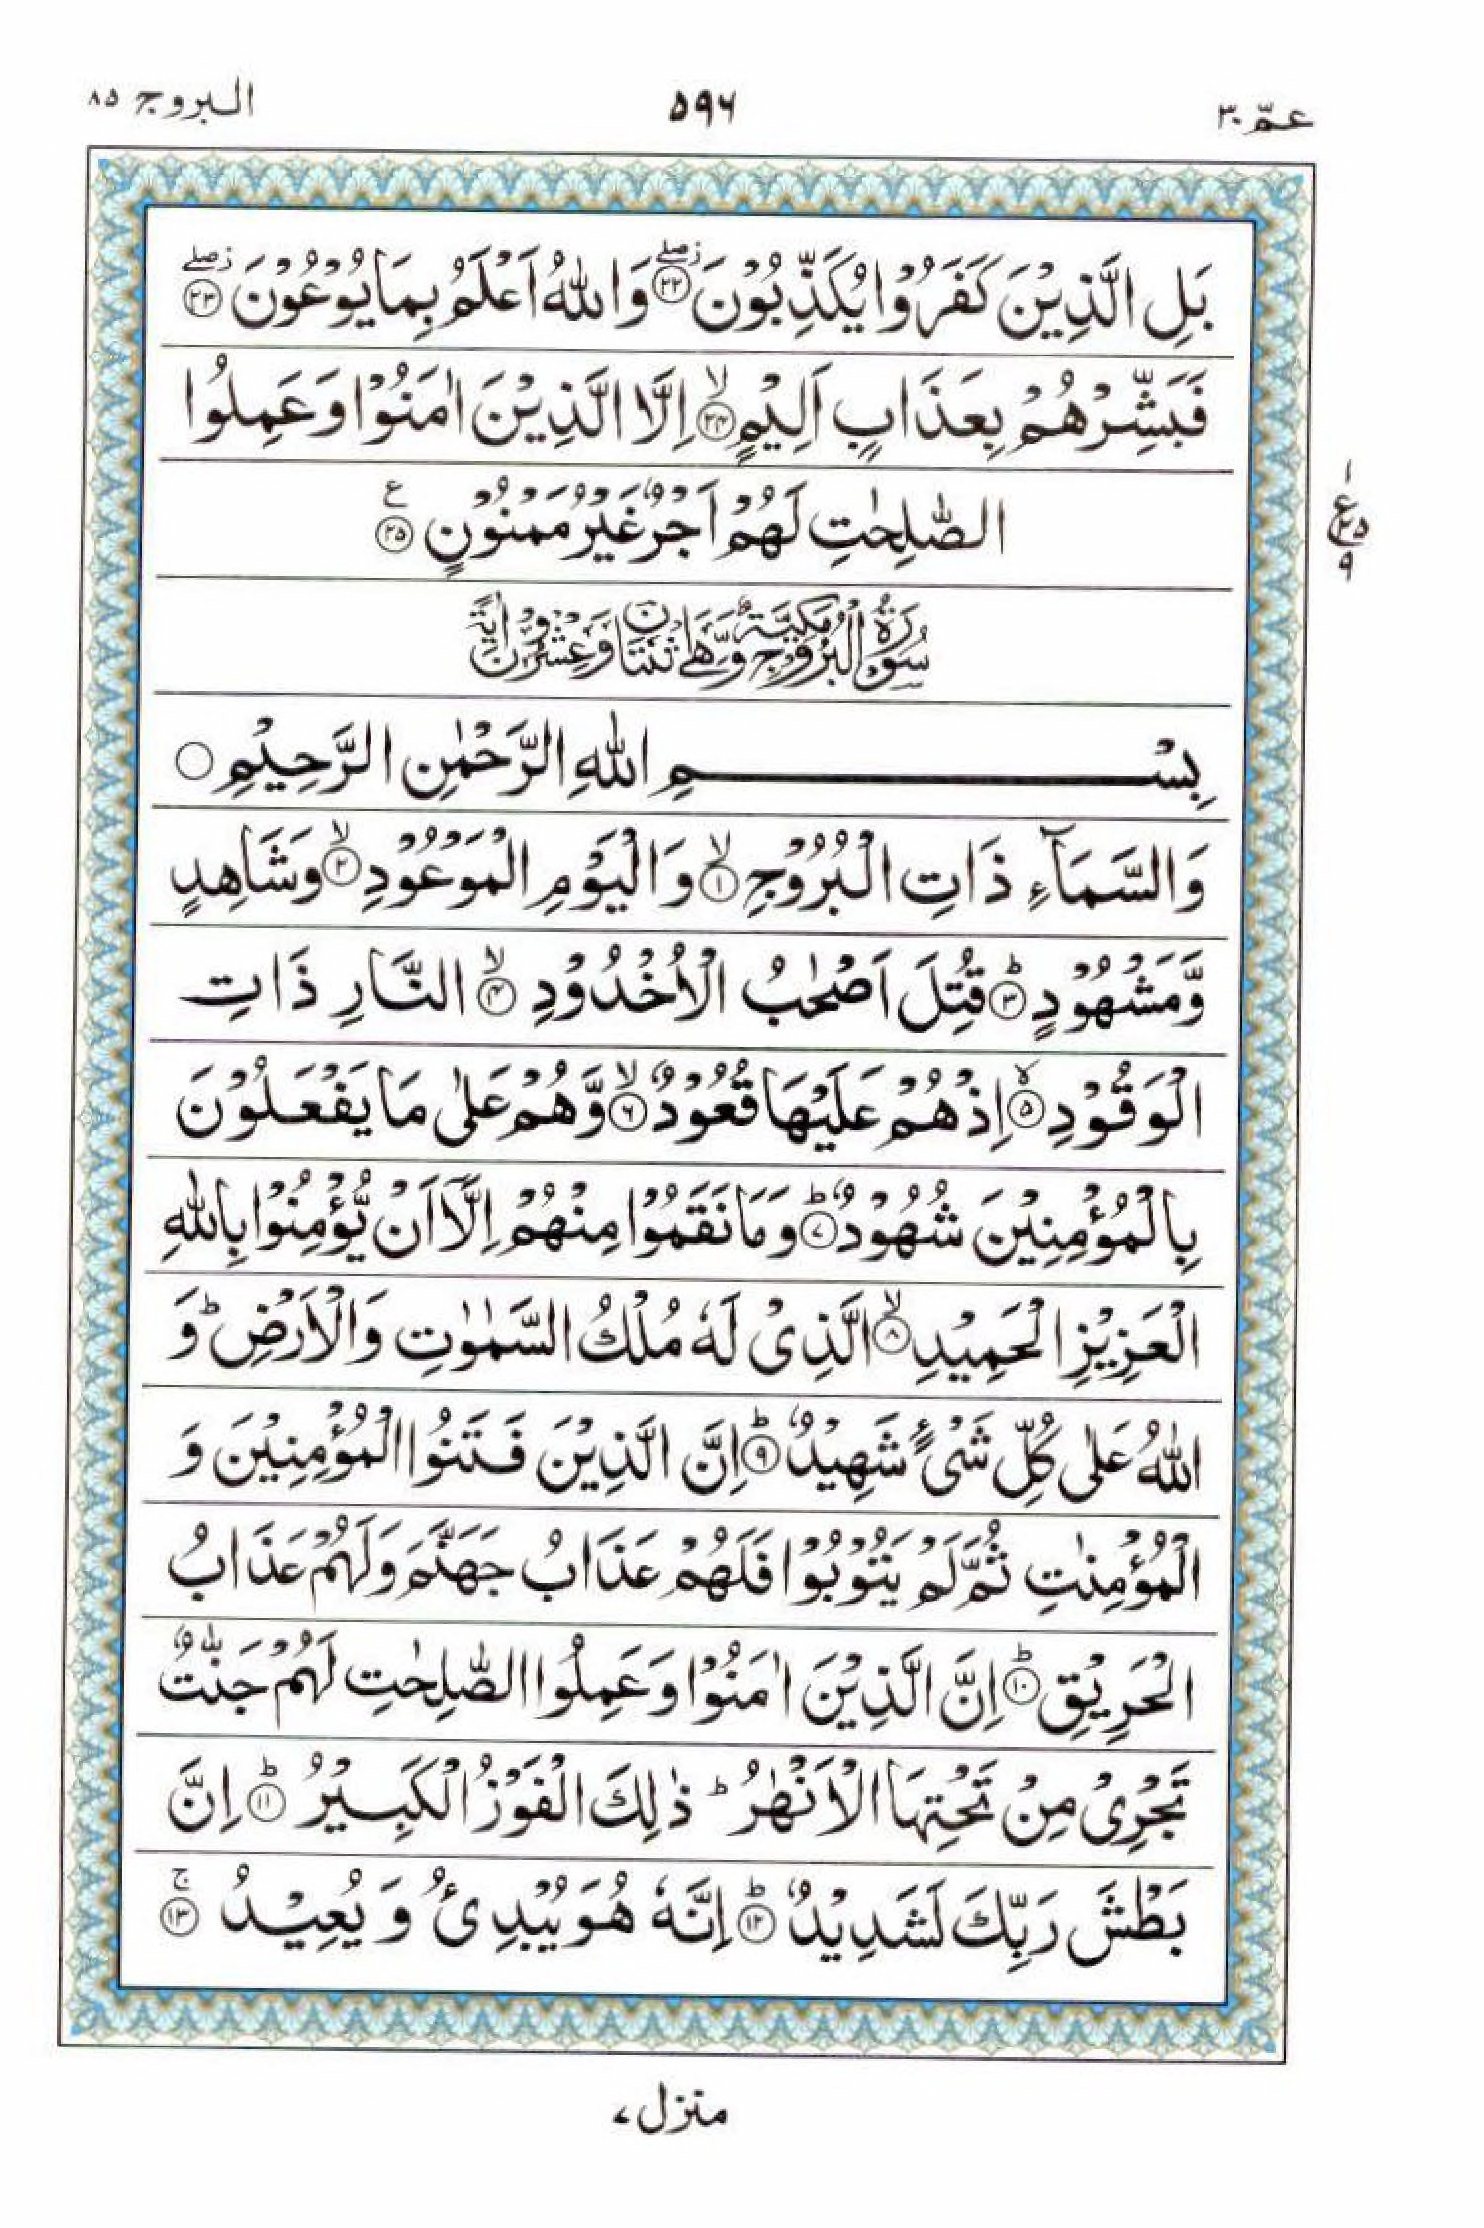 عمّ ٣٠
٥٩٦
البروج ٨٥
بَلِ الَّذِيْنَ كَفَرُوْا يُكَذِّبُوْنَ ۝٢٢ زصلے وَاللّٰهُ اَعْلَمُ بِمَا يُوْعُوْنَ ۝٢٣ زصلے
فَبَشِّرْهُمْ بِعَذَابٍ اَلِيْمٍ ۝٢٤ لا اِلَّا الَّذِيْنَ اٰمَنُوْا وَعَمِلُوا
الصّٰلِحٰتِ لَهُمْ اَجْرٌ غَيْرُ مَمْنُوْنٍ ۝٢٥ ع
١
ع
٢٥
٩
سُوْرَةُ الْبُرُوْجِ مَكِّيَّةٌ وَّهِيَ ثْنَتَانِ وَعِشْرُوْنَ اٰيَةً
بِسْمِ اللّٰهِ الرَّحْمٰنِ الرَّحِيْمِ ۝
وَالسَّمَآءِ ذَاتِ الْبُرُوْجِ ۝١ لا وَالْيَوْمِ الْمَوْعُوْدِ ۝٢ لا وَشَاهِدٍ
وَّمَشْهُوْدٍ ۝٣ ط قُتِلَ اَصْحٰبُ الْاُخْدُوْدِ ۝٤ لا النَّارِ ذَاتِ
الْوَقُوْدِ ۝٥ لا اِذْ هُمْ عَلَيْهَا قُعُوْدٌ ۝٦ لا وَّهُمْ عَلٰى مَا يَفْعَلُوْنَ
بِالْمُؤْمِنِيْنَ شُهُوْدٌ ۝٧ ط وَمَا نَقَمُوْا مِنْهُمْ اِلَّآ اَنْ يُّؤْمِنُوْا بِاللّٰهِ
الْعَزِيْزِ الْحَمِيْدِ ۝٨ لا الَّذِيْ لَهٗ مُلْكُ السَّمٰوٰتِ وَالْاَرْضِ ؕ وَ
اللّٰهُ عَلٰى كُلِّ شَيْءٍ شَهِيْدٌ ۝٩ ط اِنَّ الَّذِيْنَ فَتَنُوا الْمُؤْمِنِيْنَ وَ
الْمُؤْمِنٰتِ ثُمَّ لَمْ يَتُوْبُوْا فَلَهُمْ عَذَابُ جَهَنَّمَ وَلَهُمْ عَذَابُ
الْحَرِيْقِ ۝١٠ ط اِنَّ الَّذِيْنَ اٰمَنُوْا وَعَمِلُوا الصّٰلِحٰتِ لَهُمْ جَنّٰتٌ
تَجْرِيْ مِنْ تَحْتِهَا الْاَنْهٰرُ ؕ ذٰلِكَ الْفَوْزُ الْكَبِيْرُ ۝١١ ط اِنَّ
بَطْشَ رَبِّكَ لَشَدِيْدٌ ۝١٢ ط اِنَّهٗ هُوَ يُبْدِئُ وَيُعِيْدُ ۝١٣ ج
منزل ٧